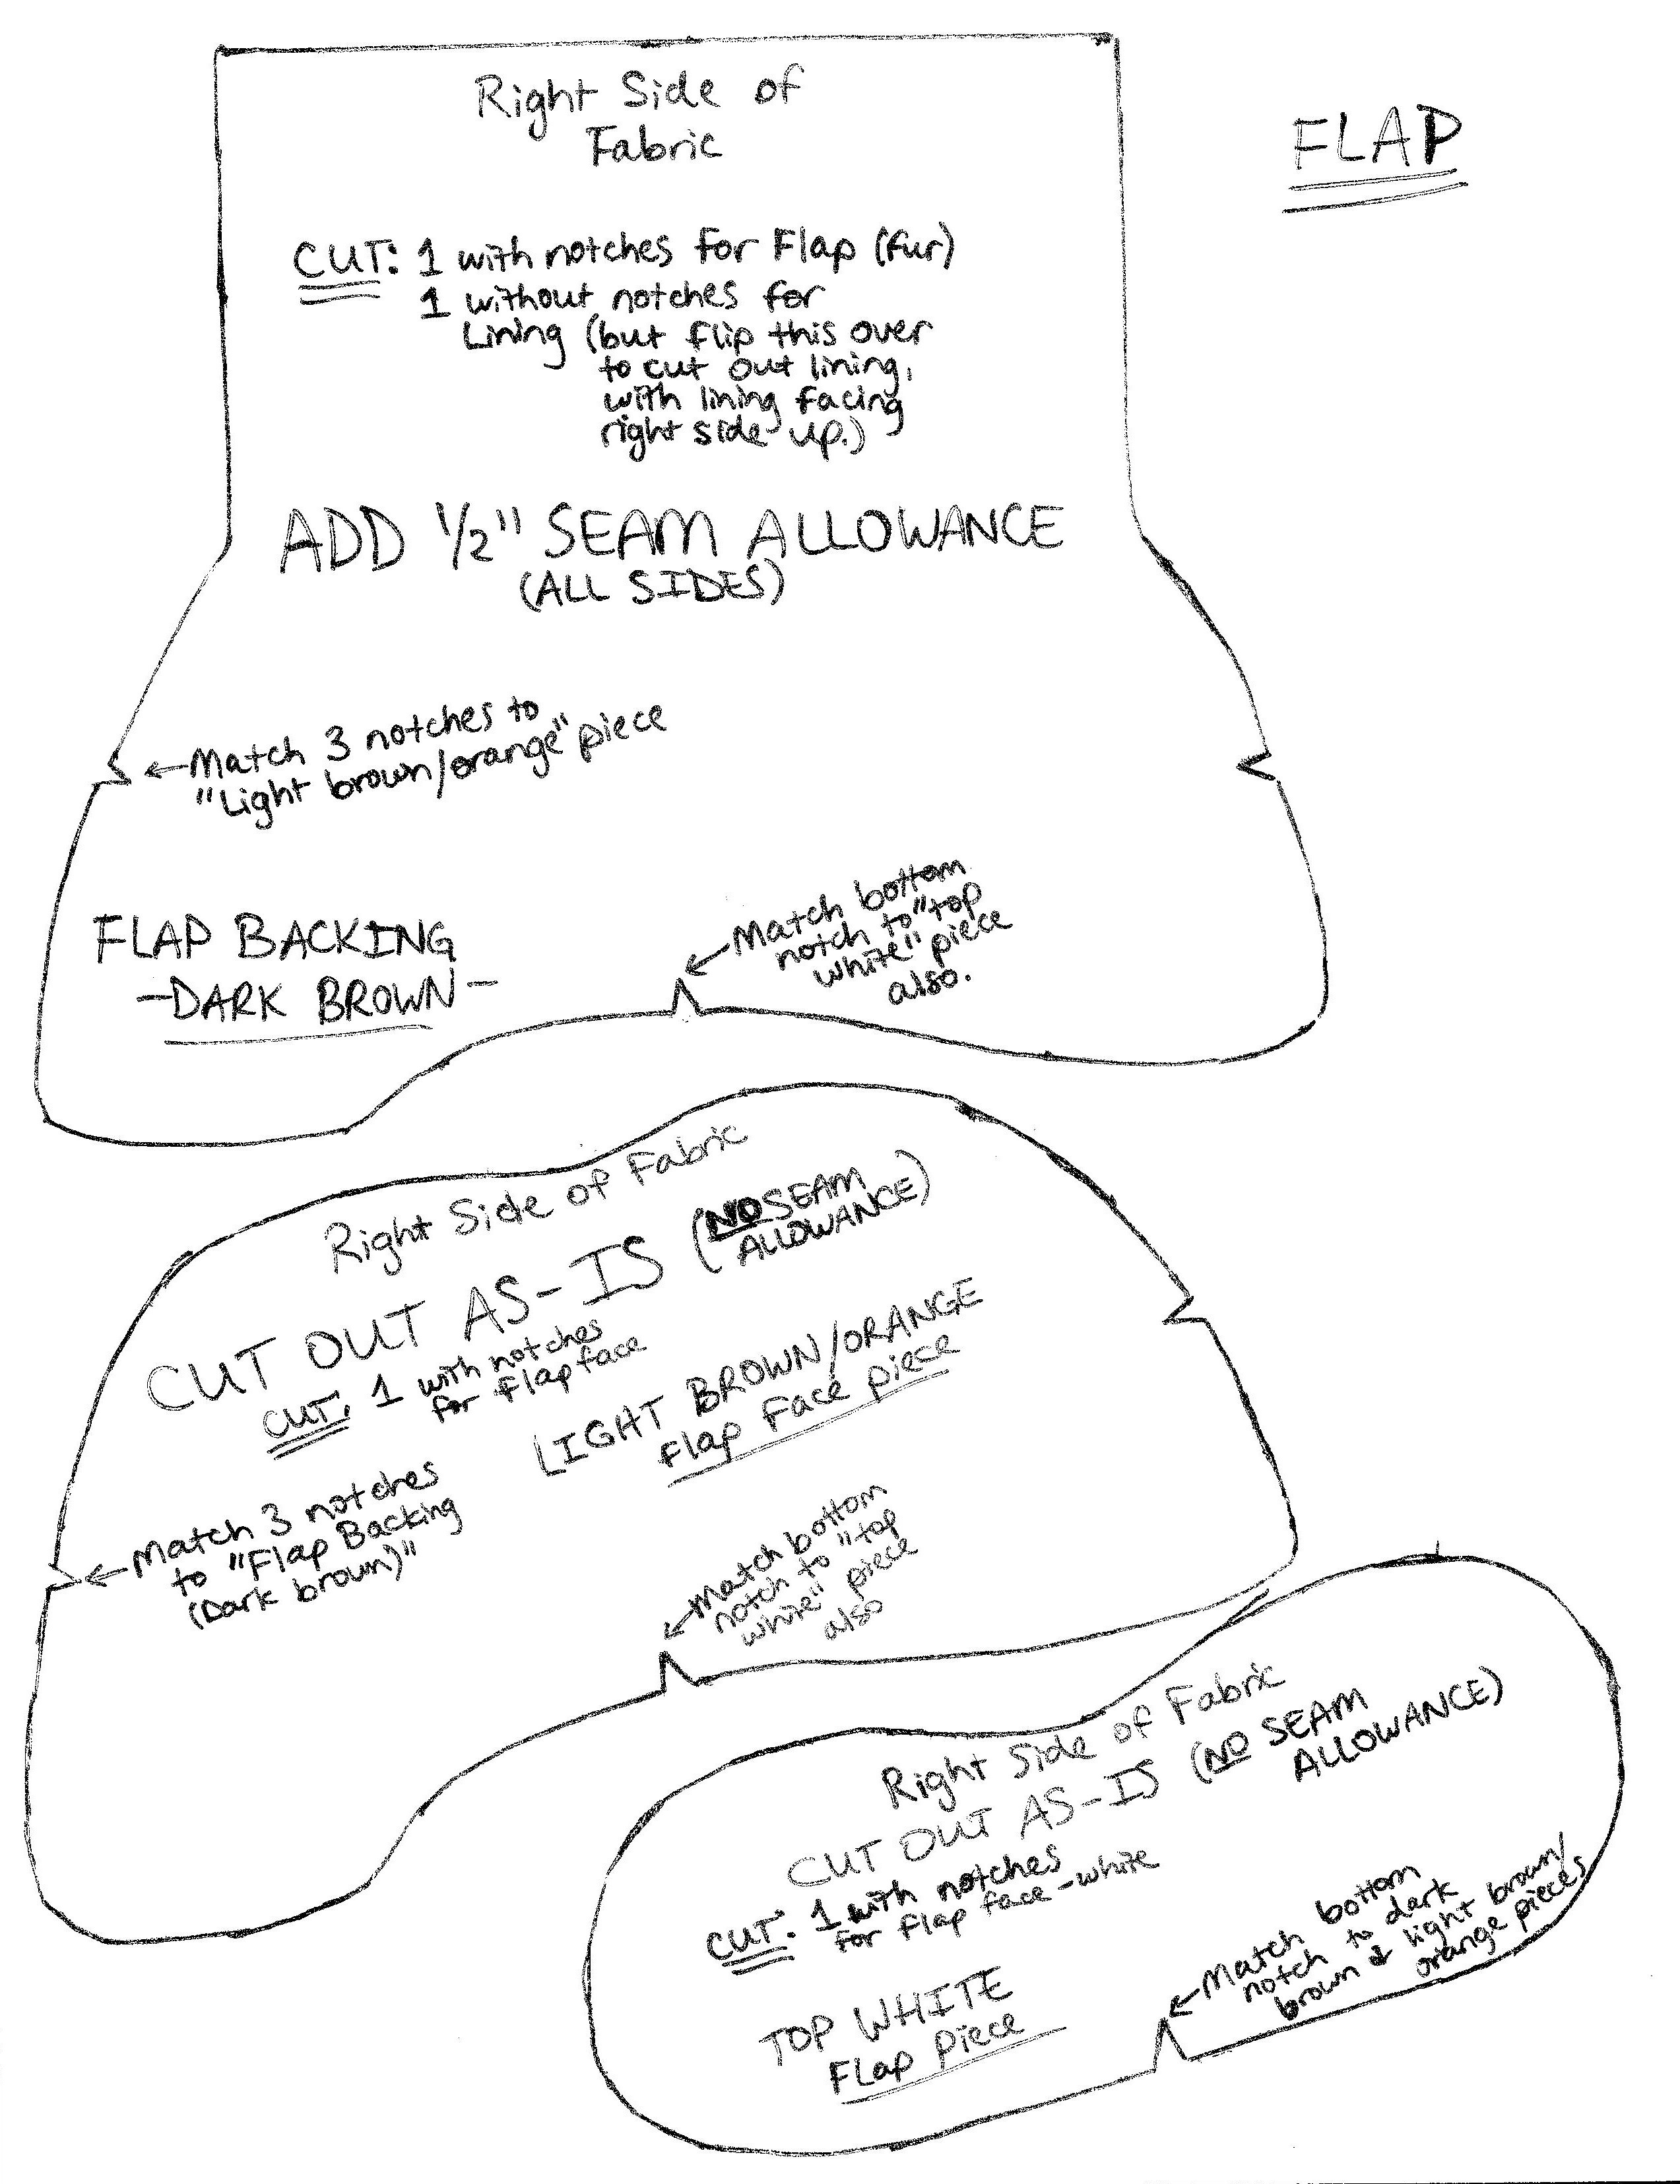 Right Side of
Fabric
FLAP
CUT: 1 with notches for Flap (fur)
1 without notches for
Lining (but flip this over
to cut out lining,
with lining facing
right side up.)
ADD 1/2" SEAM ALLOWANCE
(ALL SIDES)
←Match 3 notches to
"Light brown/orange" piece
FLAP BACKING
-DARK BROWN-
←Match bottom
notch to "top
white" piece
also.
Right Side of Fabric
CUT OUT AS-IS (NO SEAM
ALLOWANCE)
CUT: 1 with notches
for flap face
LIGHT BROWN/ORANGE
Flap Face piece
←Match 3 notches
to "Flap Backing
(Dark brown)"
←Match bottom
notch to "top
white" piece
also
Right Side of Fabric
CUT OUT AS-IS (NO SEAM
ALLOWANCE)
CUT: 1 with notches
for flap face-white
TOP WHITE
FLap Piece
←Match bottom
notch to dark
brown & light brown/
orange pieces